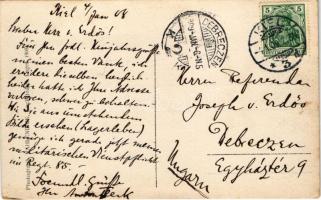 Kiel 4/Jan 08
Lieber Herr v. Erdős!
Für Ihr frdl. Neujahrsgrüße
meinen besten Dank, ich
erwidere dieselben herzlich
leider hatte ich Ihre Adresse
verloren, schwer zu behalten.
Wie Sie aus umstehendem
Bilde ersehen
genüge ich gerade jetzt meiner
militärischen Dienstpflicht
im Regt. 85.
Freundl. Grüße
Ihr
Herrn Referendar
Joseph v. Erdős
Debeczen
Egyháztér 9
Ungarn
DEBRECZEN
KIEL
5